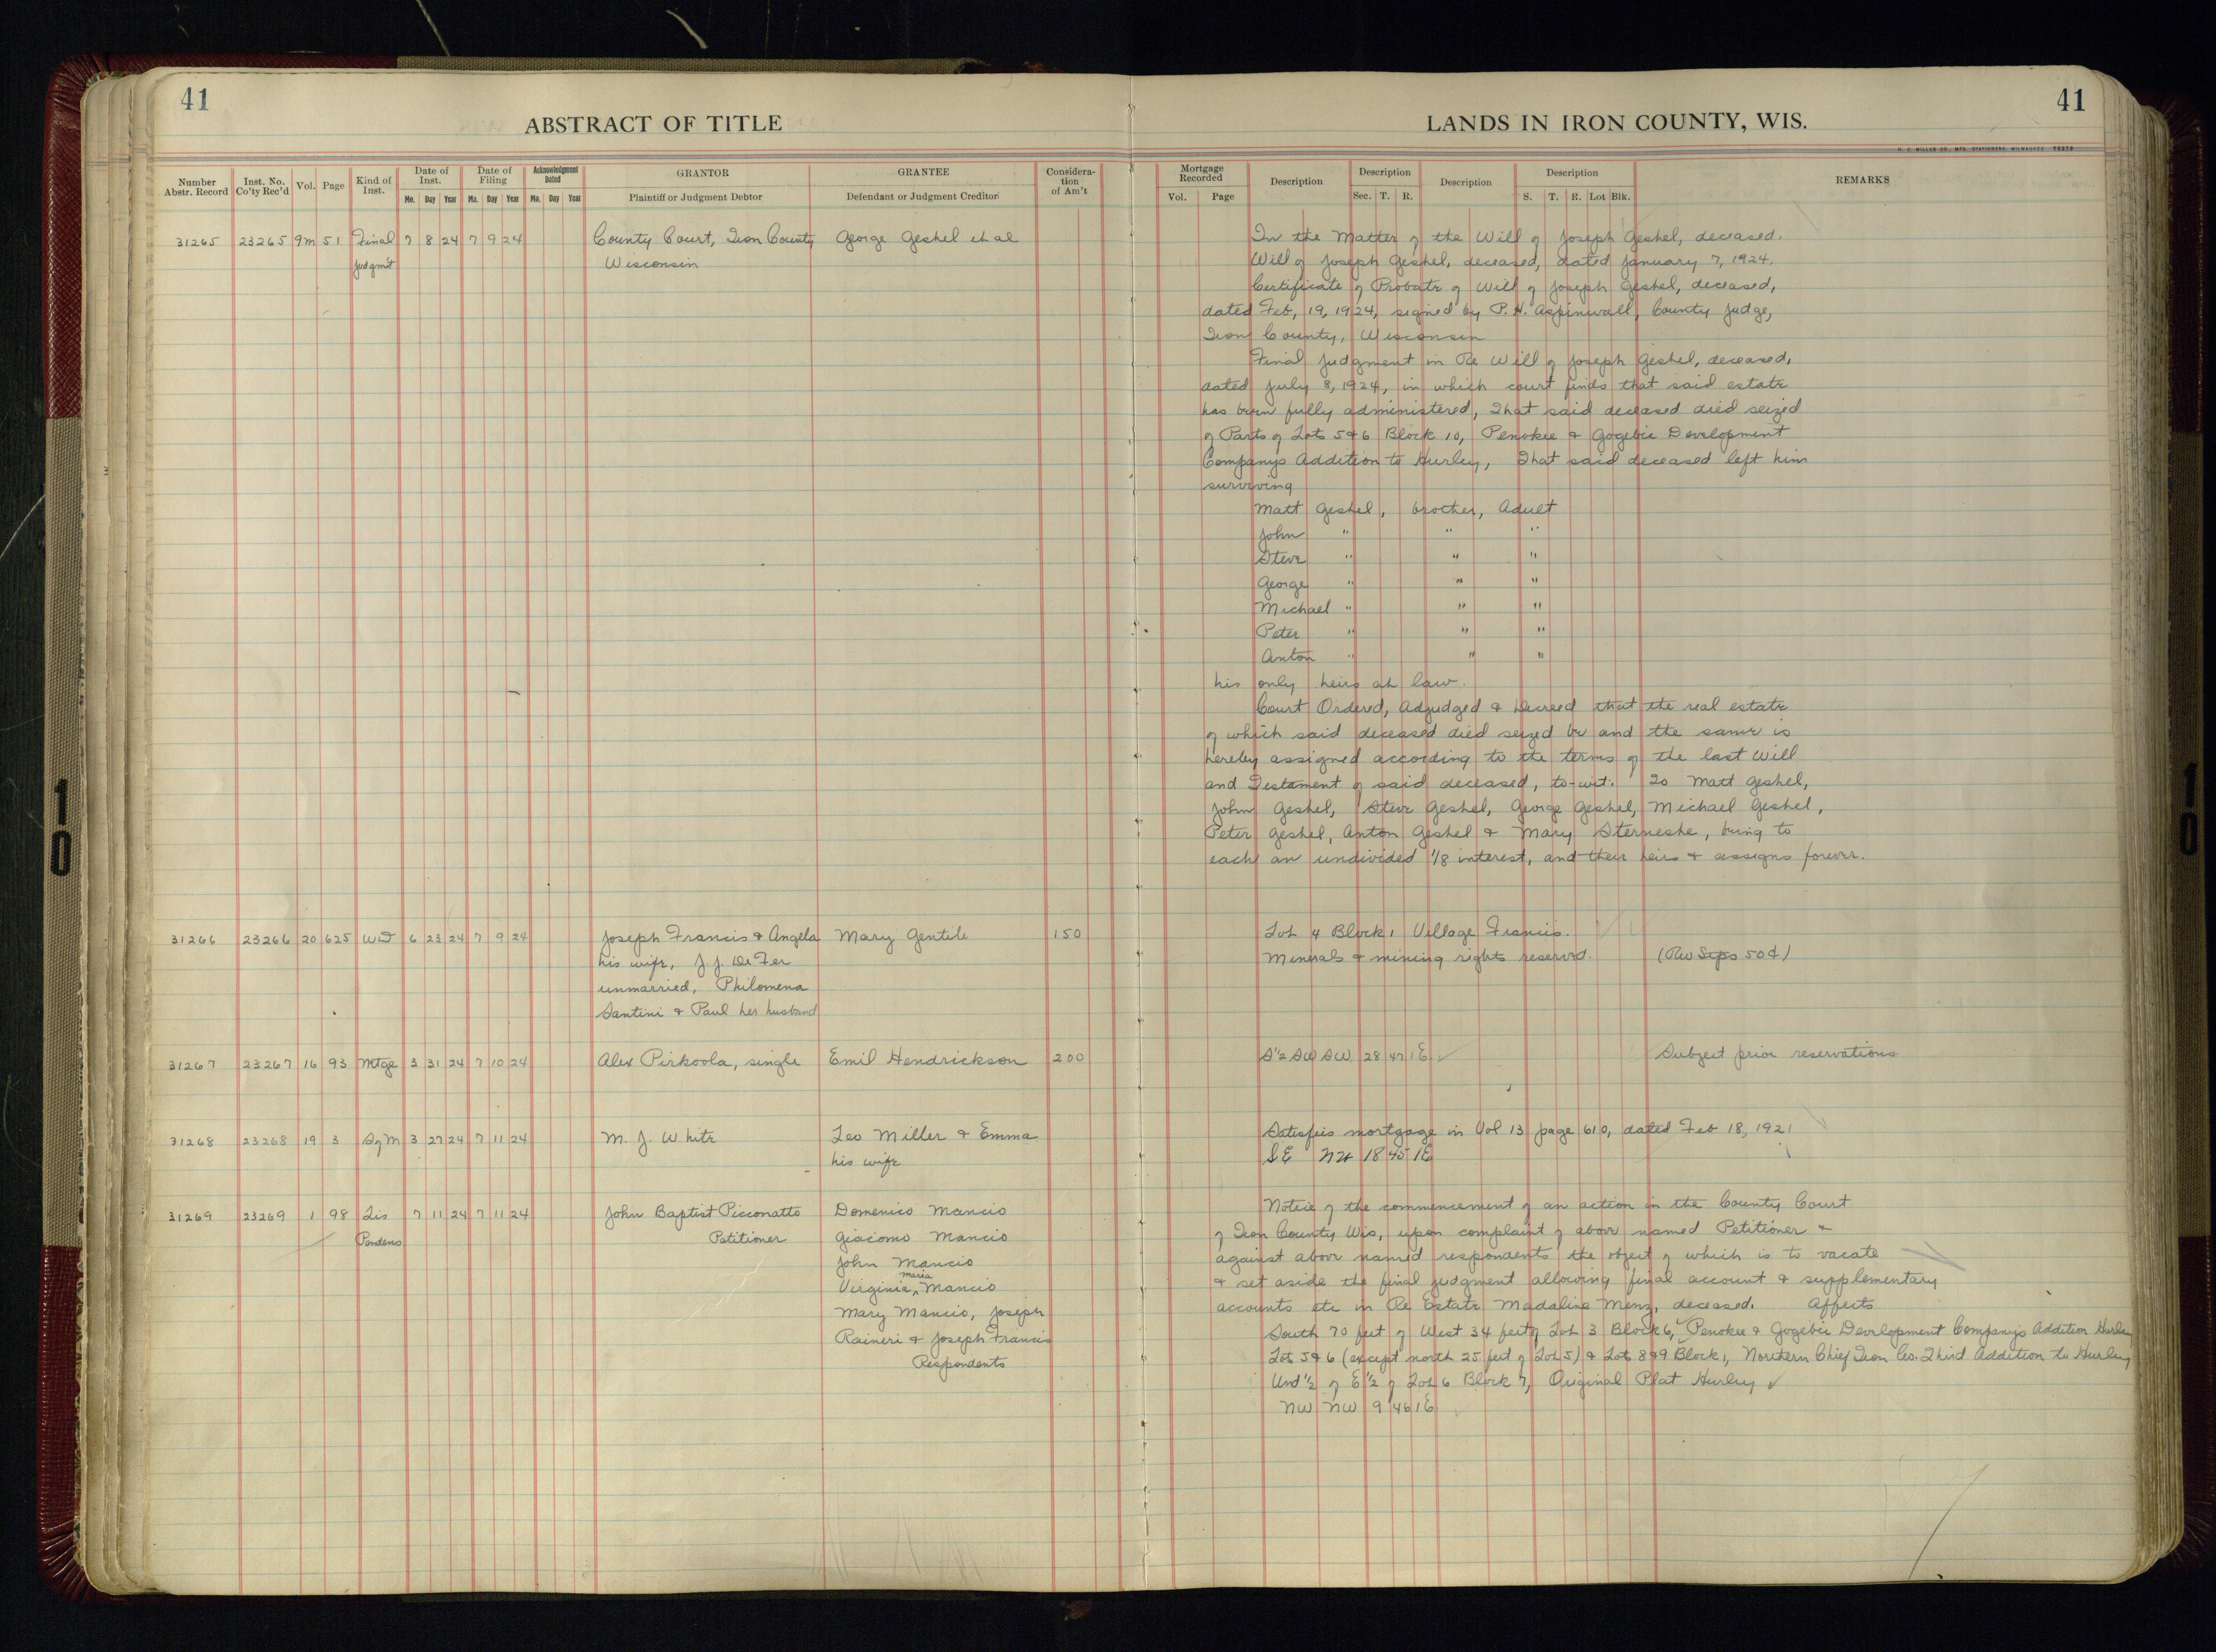 41
41
ABSTRACT OF TITLE
LANDS IN IRON COUNTY, WIS.
H. C. MILLER CO., MFG. STATIONERS, MILWAUKEE
Number Abstr. Record
Inst. No. Co'ty Rec'd
Vol.
Page
Kind of Inst.
Date of Inst.
Mo. Day Year
Date of Filing
Mo. Day Year
Acknowledgment Dated
Mo. Day Year
GRANTOR
Plaintiff or Judgment Debtor
GRANTEE
Defendant or Judgment Creditor
Considera- tion of Am't
Mortgage Recorded
Vol. Page
Description
Description
Sec. T. R.
Description
Description
S. T. R. Lot Blk.
REMARKS
31265 23265 9m 51 Final 7 8 24 7 9 24 County Court, Iron County George Geshel et al
Judgm't Wisconsin
In the Matter of the Will of Joseph Geshel, deceased.
Will of Joseph Geshel, deceased, dated January 7, 1924.
Certificate of Probate of Will of Joseph Geshel, deceased,
dated Feb, 19, 1924, signed by P. H. Aspinwall, County Judge,
Iron County, Wisconsin
Final Judgment in Re Will of Joseph Geshel, deceased,
dated July 8, 1924, in which court finds that said estate
has been fully administered, That said deceased died seized
of Parts of Lots 5 & 6 Block 10, Penokee & Gogebic Development
Companys Addition to Hurley, That said deceased left him
surviving
Matt Geshel, brother, Adult
John " " "
Steve " " "
George " " "
Michael " " "
Peter " " "
Anton " " "
his only heirs at law.
Court Ordered, Adjudged & Decreed that the real estate
of which said deceased died seized be and the same is
hereby assigned according to the terms of the last Will
and Testament of said deceased, to-wit: To Matt Geshel,
John Geshel, Steve Geshel, George Geshel, Michael Geshel,
Peter Geshel, Anton Geshel & Mary Sterneshe, being to
each an undivided 1/8 interest, and their heirs & assigns forever.
31266 23266 20 625 WD 6 23 24 7 9 24 Joseph Francis & Angela Mary Gentile 150 Lot 4 Block 1 Village Francis.
his wife, J. J. De Fer Minerals & mining rights reserved. (Rev Stps 50¢)
unmarried, Philomena
Santini & Paul her husband
31267 23267 16 93 Mtge 3 31 24 7 10 24 Alex Pirkoola, single Emil Hendrickson 200 S½ SW SW 28 47 1E Subject prior reservations
31268 23268 19 3 S of M 3 27 24 7 11 24 M. J. White Leo Miller & Emma Satisfies mortgage in Vol 13 page 610, dated Feb 18, 1921
his wife SE NW 18 45 1E
31269 23269 1 98 Lis 7 11 24 7 11 24 John Baptist Picconatto Domenico Mancio
Pendens Petitioner Giacomo Mancio
John Mancio
Virginia Maria Mancio
Mary Mancio, Joseph
Raineri & Joseph Francis
Respondents
Notice of the commencement of an action in the County Court
of Iron County Wis, upon complaint of above named Petitioner &
against above named respondents the object of which is to vacate
& set aside the final judgment allowing final account & supplementary
accounts etc in Re Estate Madaline Menz, deceased. Affects
South 70 feet of West 34 feet of Lot 3 Block 6, Penokee & Gogebic Development Companys Addition Hurley
Lots 5 & 6 (except north 25 feet of Lot 5) & Lots 8 & 9 Block 1, Northern Chief Iron Co. Third Addition to Hurley
Und ½ of E½ of Lot 6 Block 7, Original Plat Hurley
NW NW 9 46 1E
10
10